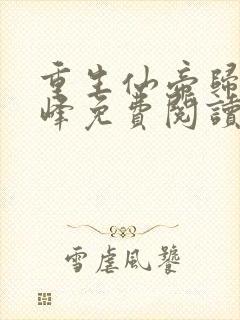 重生仙帝歸
峰免費閱讀
雪虐風饕